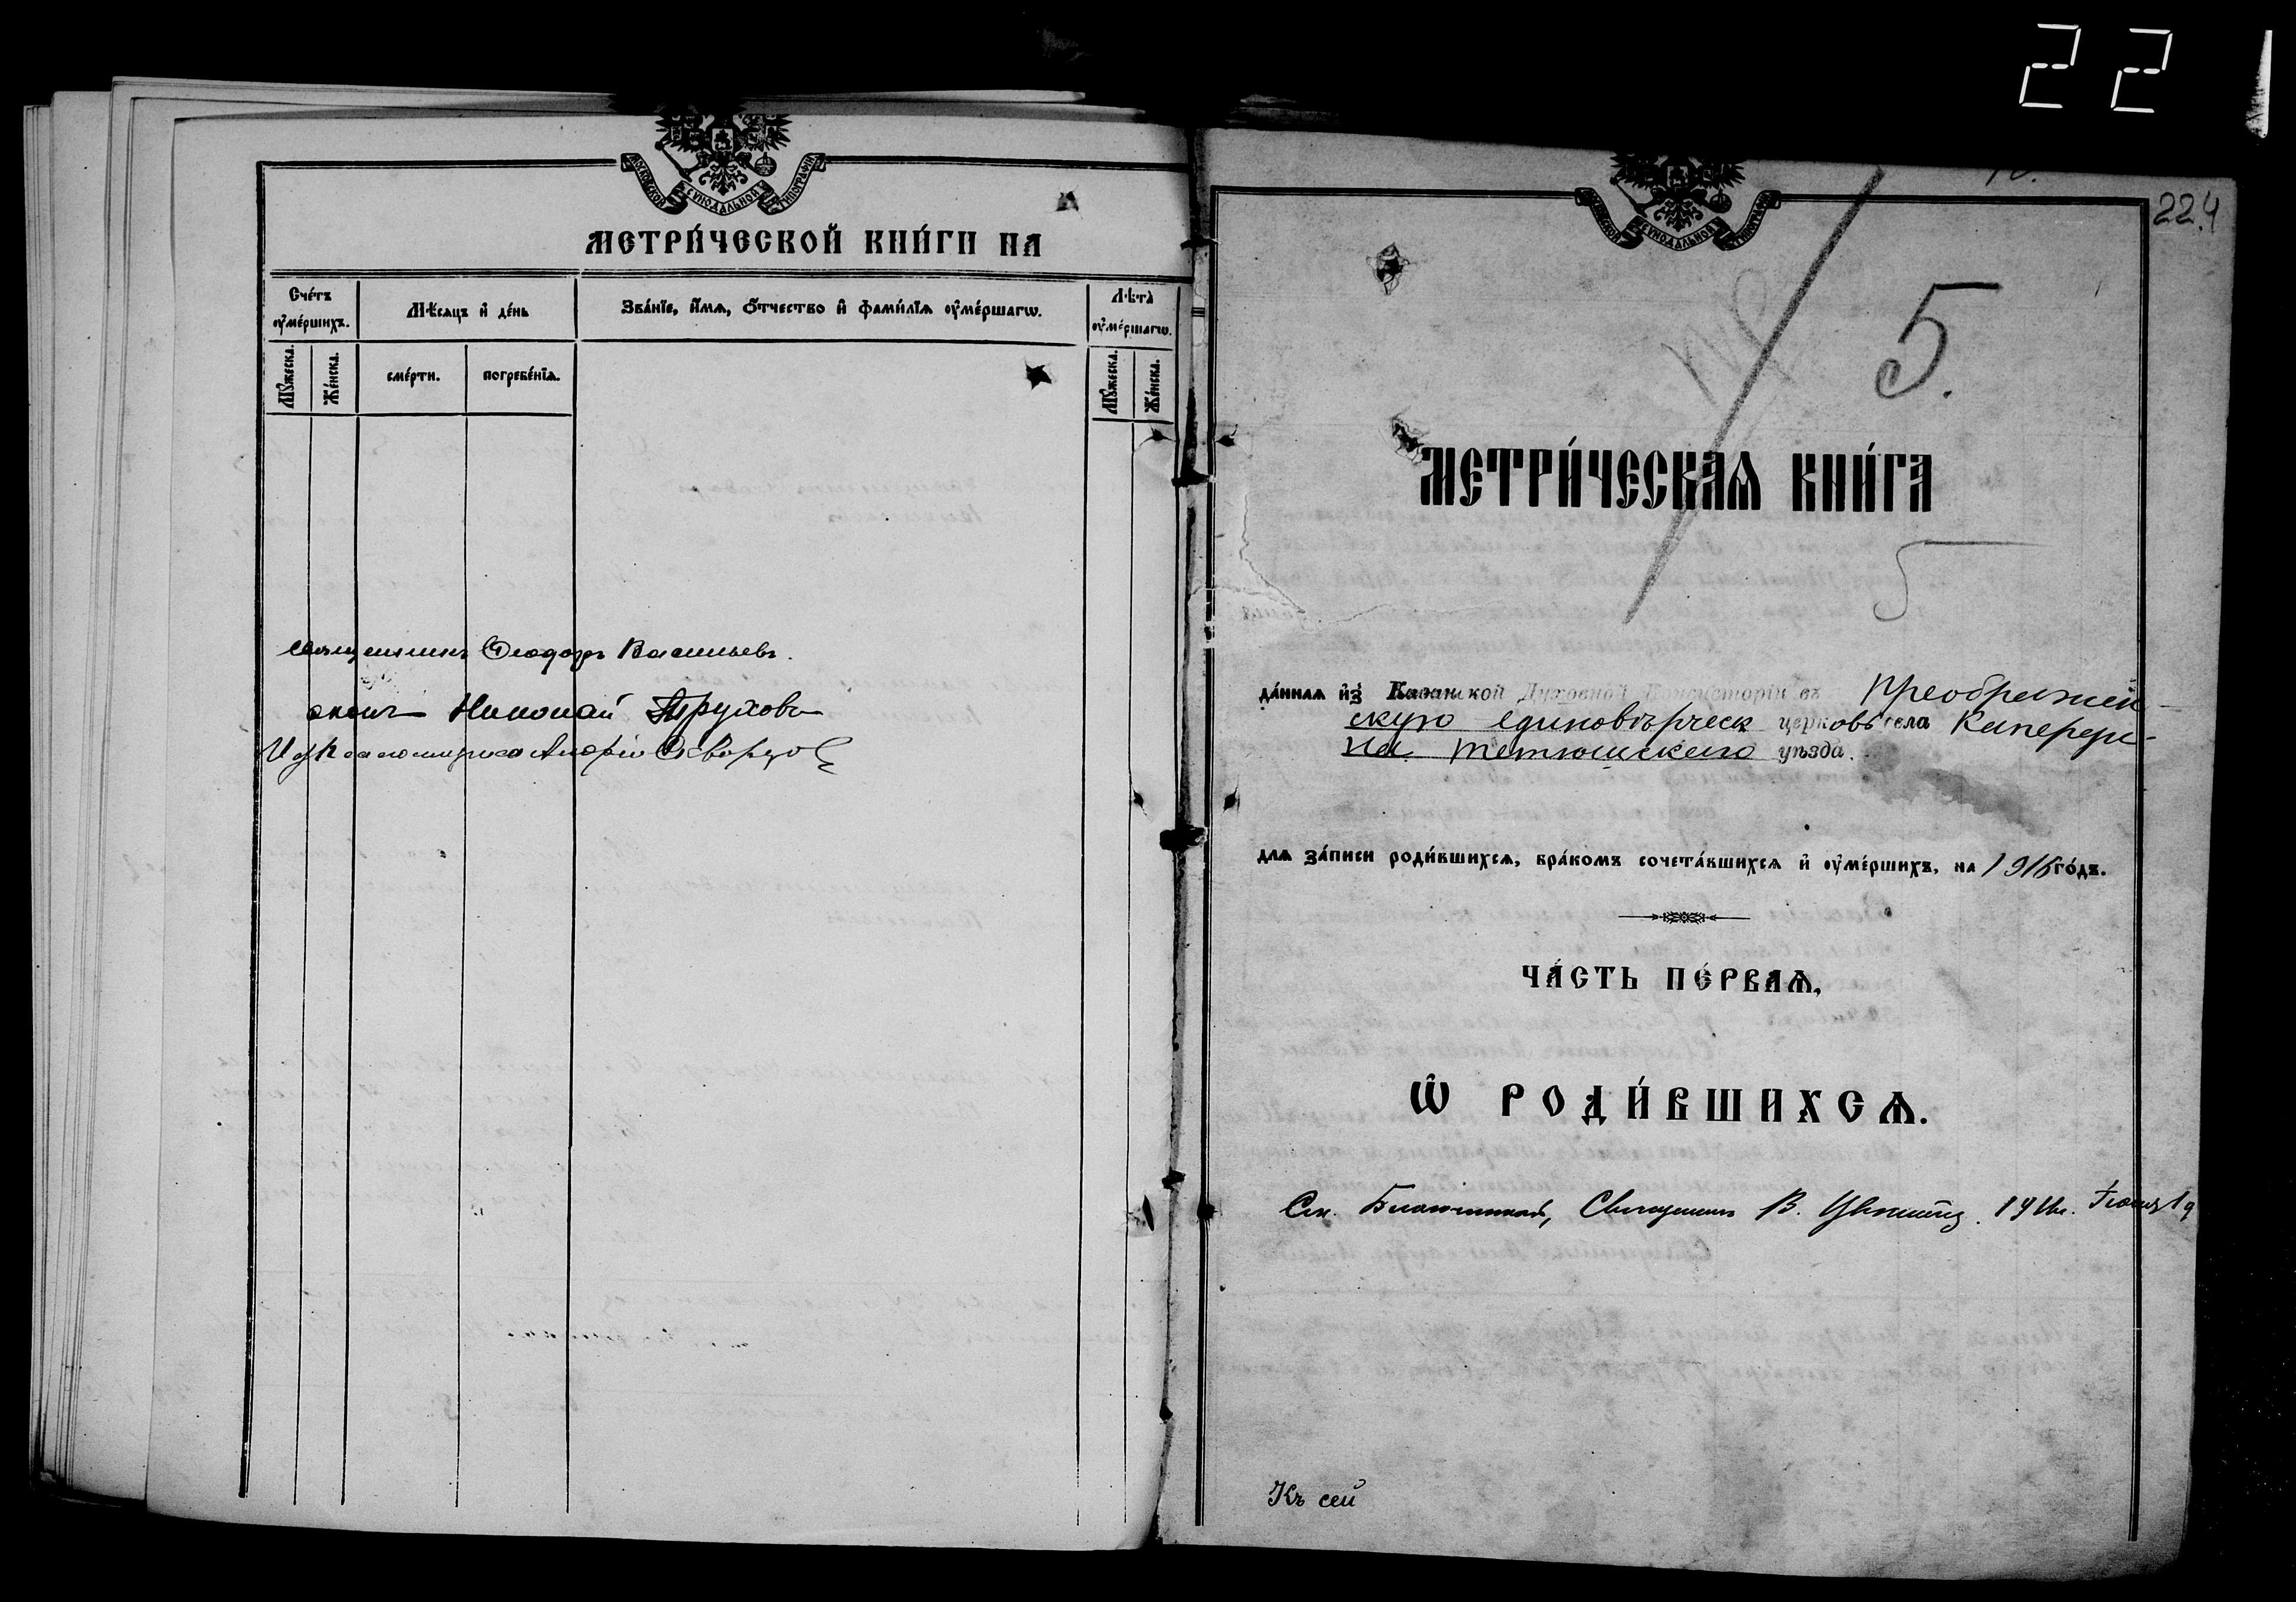 22
МОСКОВСКОЙ СѴНОДАЛЬНОЙ ТИПОГРАФІИ
МЕТРИ́ЧЕСКОЙ КНИ́ГИ НА
Сче́тъ ᲂу҆ме́ршихъ.
Мѣ́сяцъ и҆ де́нь
Зва́нїе, и҆́мѧ, ѻ҆́тчество и҆ фами́лїѧ ᲂу҆ме́ршагѡ.
Лѣ́та ᲂу҆ме́ршагѡ.
Мꙋ́жеска.
Же́нска.
сме́рти.
погребе́нїѧ.
Мꙋ́жеска.
Же́нска.
священникъ Ѳеодоръ Васильевъ.
Николай Труховъ
И д псаломщика Андрей Скворцов
СѴНОДАЛЬНОЙ
224
5.
МЕТРИ́ЧЕСКАѦ КНИ́ГА
5
да́ннаѧ и҆з̾ Казанской Духовной Консисторіи въ Преображен-
скую единовѣрческ церковь села
Тетюшскаго уѣзда.
длѧ за́писи роди́вшихсѧ, бра́комъ сочета́вшихсѧ и҆ ᲂу҆ме́ршихъ, на 1916 го́дъ.
ЧА́СТЬ ПЕ́РВАѦ,
Ѽ РОДИ́ВШИХСѦ.
Благочинный, Священникъ В.
Къ сей